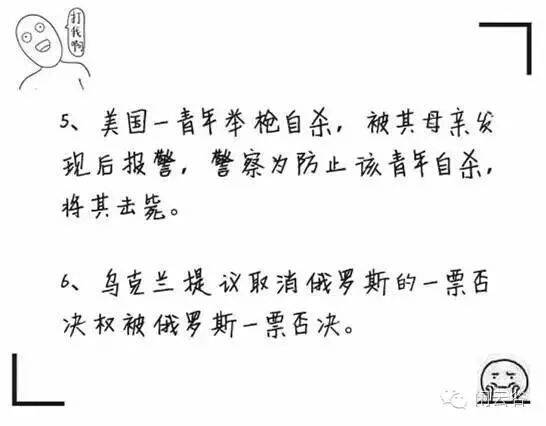 打我啊
5、美国一青年举枪自杀，被其母亲发
现后报警，警察为防止该青年自杀，
将其击毙。
6、乌克兰提议取消俄罗斯的一票否
决权被俄罗斯一票否决。
闲云谷